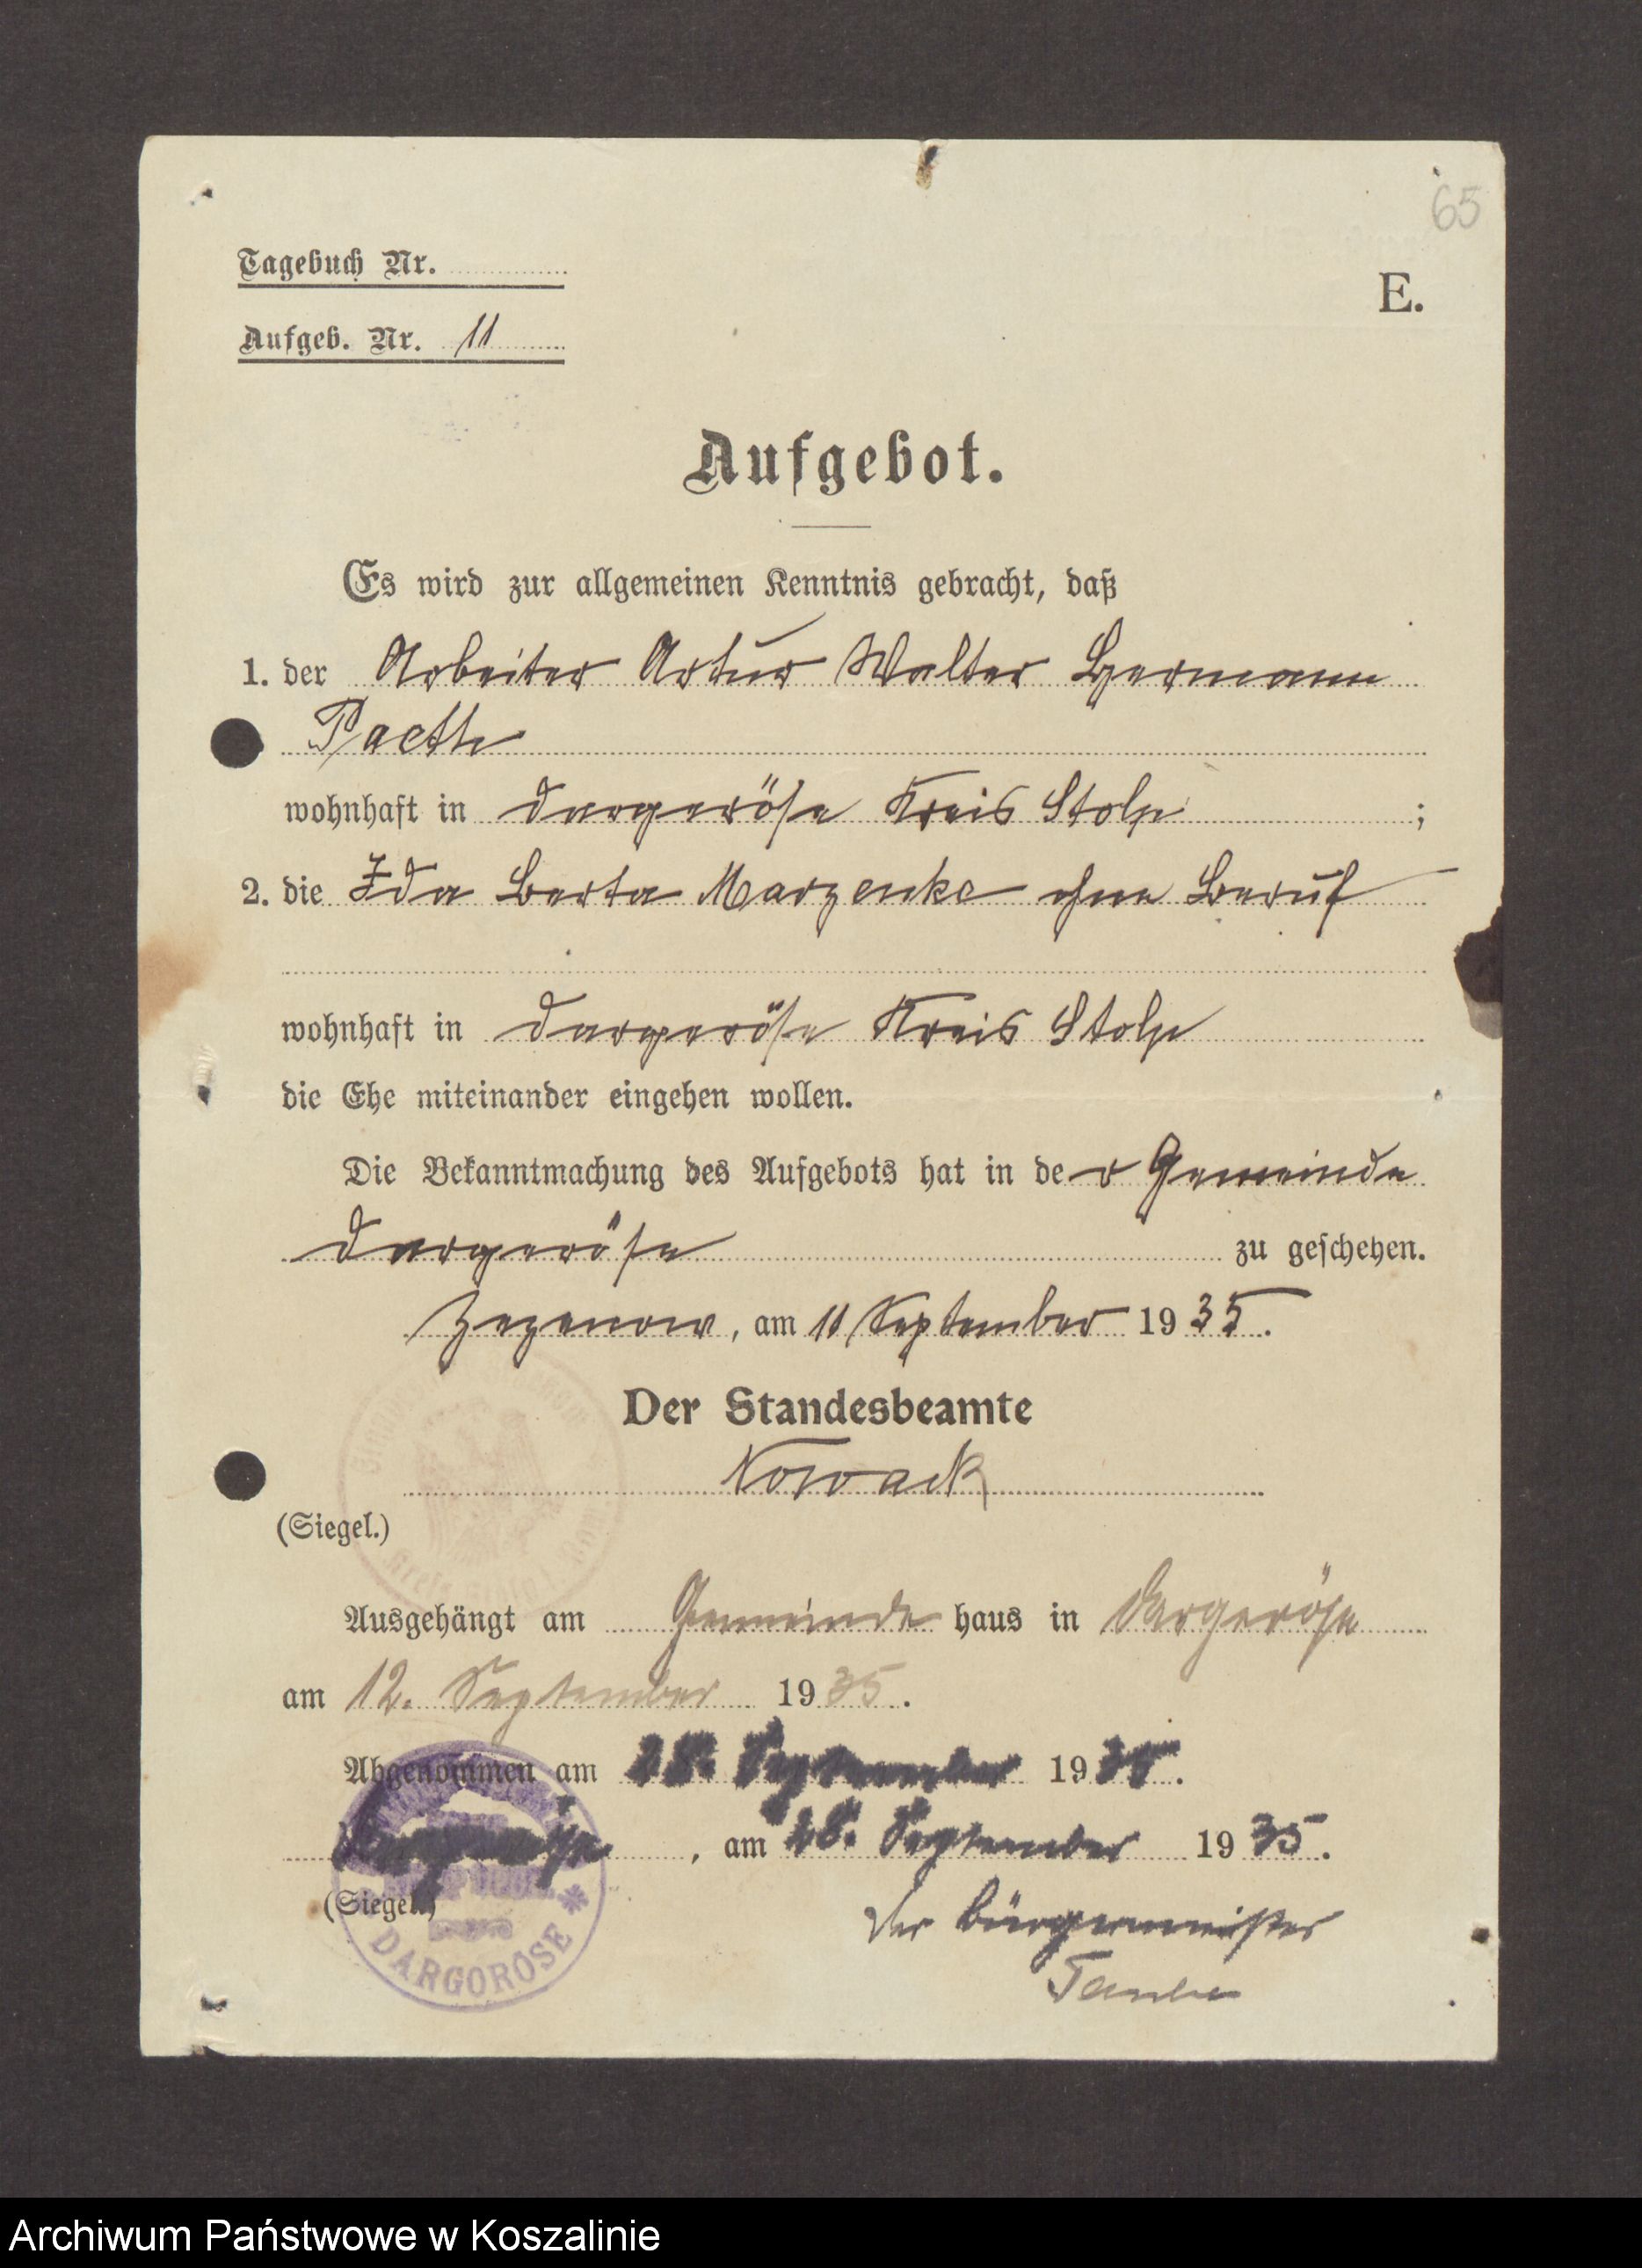 65
Tagebuch Nr.
E.
Aufgeb. Nr. 11
Aufgebot.
Es wird zur allgemeinen Kenntnis gebracht, daß
1. der Arbeiter Artur Walter Hermann
Paeth
wohnhaft in Dargeröse Kreis Stolp ;
2. die Ida Berta Marzenke ohne Beruf
wohnhaft in Dargeröse Kreis Stolp
die Ehe miteinander eingehen wollen.
Die Bekanntmachung des Aufgebots hat in der Gemeinde
Dargeröse zu geschehen.
Zezenow, am 11 September 1935.
Der Standesbeamte
Nowack
(Siegel.)
Ausgehängt am Gemeinde haus in Dargeröse
am 12. September 1935.
Abgenommen am September 1935.
Dargeröse, am 28. September 1935.
(Siegel.)
DARGORÖSE
Der Bürgermeister
Archiwum Państwowe w Koszalinie